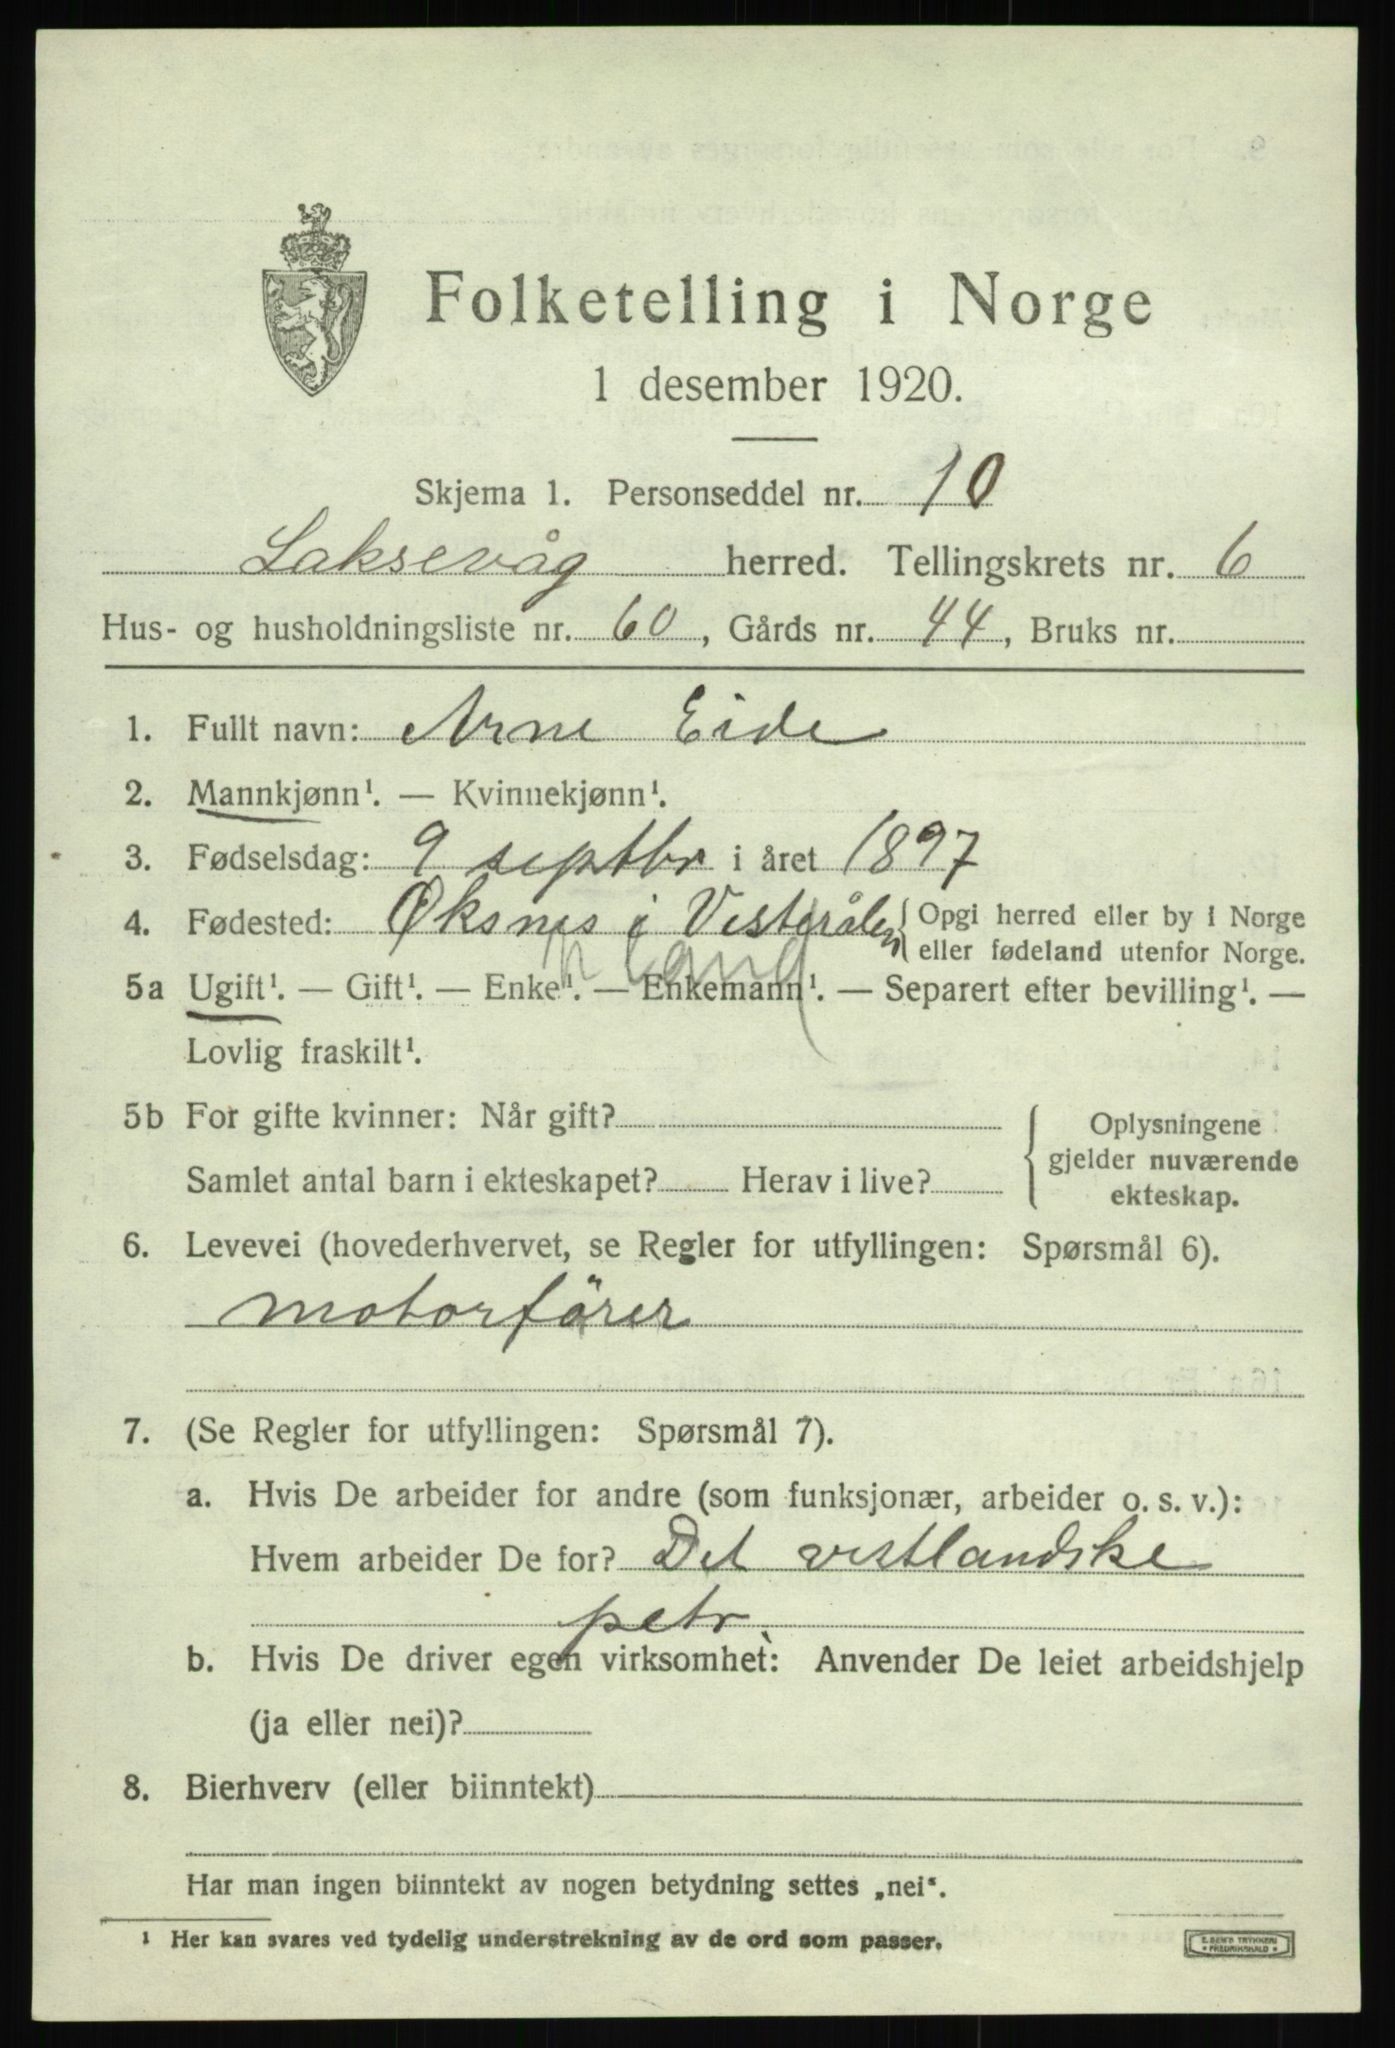 Folketelling i Norge
1 desember 1920.
Skjema 1. Personseddel nr. 10
Laksevåg herred. Tellingskrets nr. 6
Hus- og husholdningsliste nr. 60, Gårds nr. 44, Bruks nr.
1. Fullt navn: Arne Eide
2. Mannkjønn¹. — Kvinnekjønn¹.
3. Fødselsdag: 9 septbr i året 1897
4. Fødested: Øksnes i Vesterålen { Opgi herred eller by i Norge
eller fødeland utenfor Norge.
5a Ugift¹. — Gift¹. — Enke¹. — Enkemann¹. — Separert efter bevilling¹. —
Lovlig fraskilt¹.
5b For gifte kvinner: Når gift? { Oplysningene
gjelder nuværende
Samlet antal barn i ekteskapet? Herav i live?
ekteskap.
6. Levevei (hovederhvervet, se Regler for utfyllingen: Spørsmål 6).
motorförer
7. (Se Regler for utfyllingen: Spørsmål 7).
a. Hvis De arbeider for andre (som funksjonær, arbeider o. s. v.):
Hvem arbeider De for? Det vestlandske
petr.
b. Hvis De driver egen virksomhet: Anvender De leiet arbeidshjelp
(ja eller nei)?
8. Bierhverv (eller biinntekt)
Har man ingen biinntekt av nogen betydning settes „nei“.
¹ Her kan svares ved tydelig understrekning av de ord som passer.